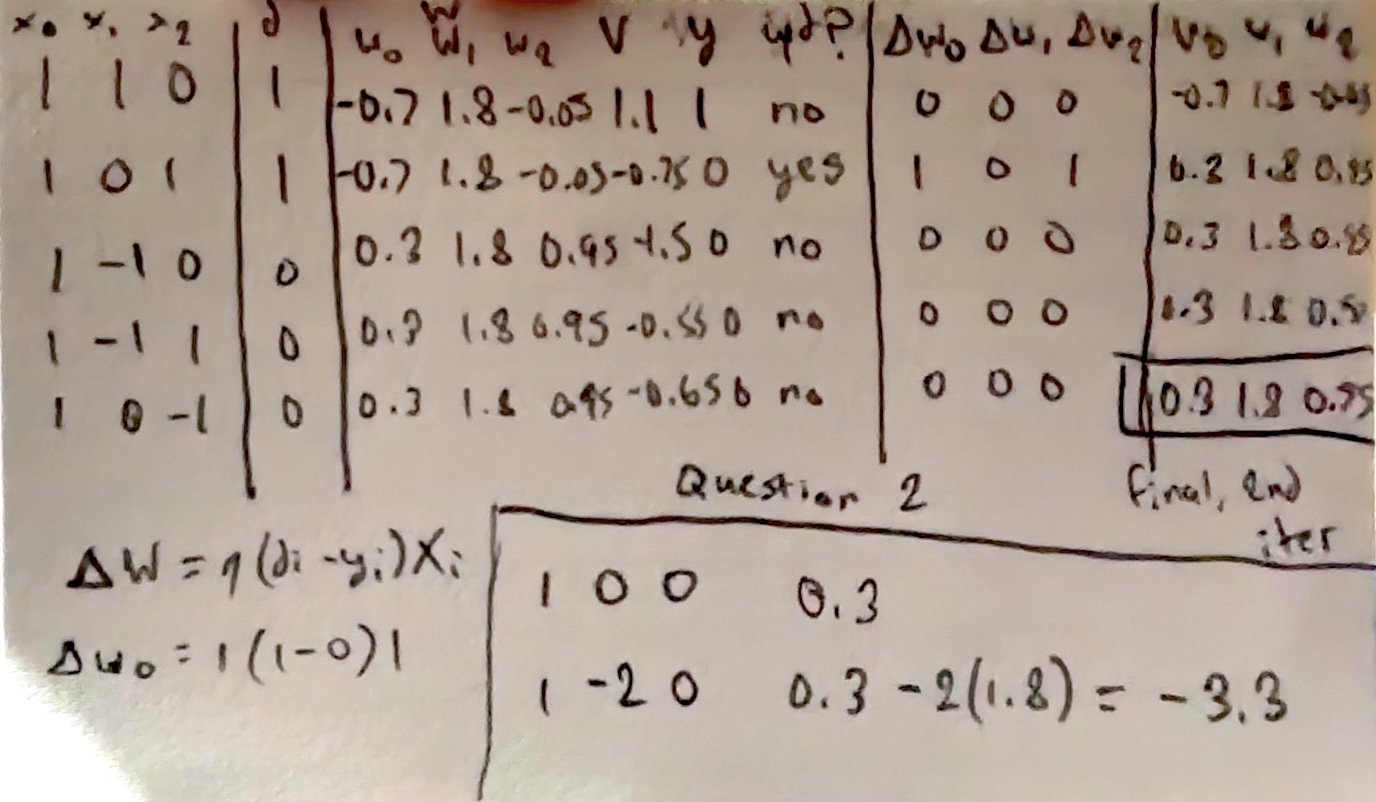 x₀ x₁ x₂ d w₀ w₁ w₂ V y y≠d? Δw₀ Δw₁ Δw₂ w₀ w₁ w₂
1 1 0 1 -0.7 1.8 -0.05 1.1 1 no 0 0 0 -0.7 1.8 -0.05
1 0 1 1 -0.7 1.8 -0.05 -0.75 0 yes 1 0 1 0.3 1.8 0.95
1 -1 0 0 0.3 1.8 0.95 -1.5 0 no 0 0 0 0.3 1.8 0.95
1 -1 1 0 0.3 1.8 0.95 -0.55 0 no 0 0 0 0.3 1.8
1 0 -1 0 0.3 1.8 0.95 -0.65 0 no 0 0 0 0.3 1.8 0.95
Question 2
final, 2nd
iter
ΔW = η(di - yi)Xi
Δw₀ = 1(1-0)1
1 0 0 0.3
1 -2 0 0.3 - 2(1.8) = -3.3